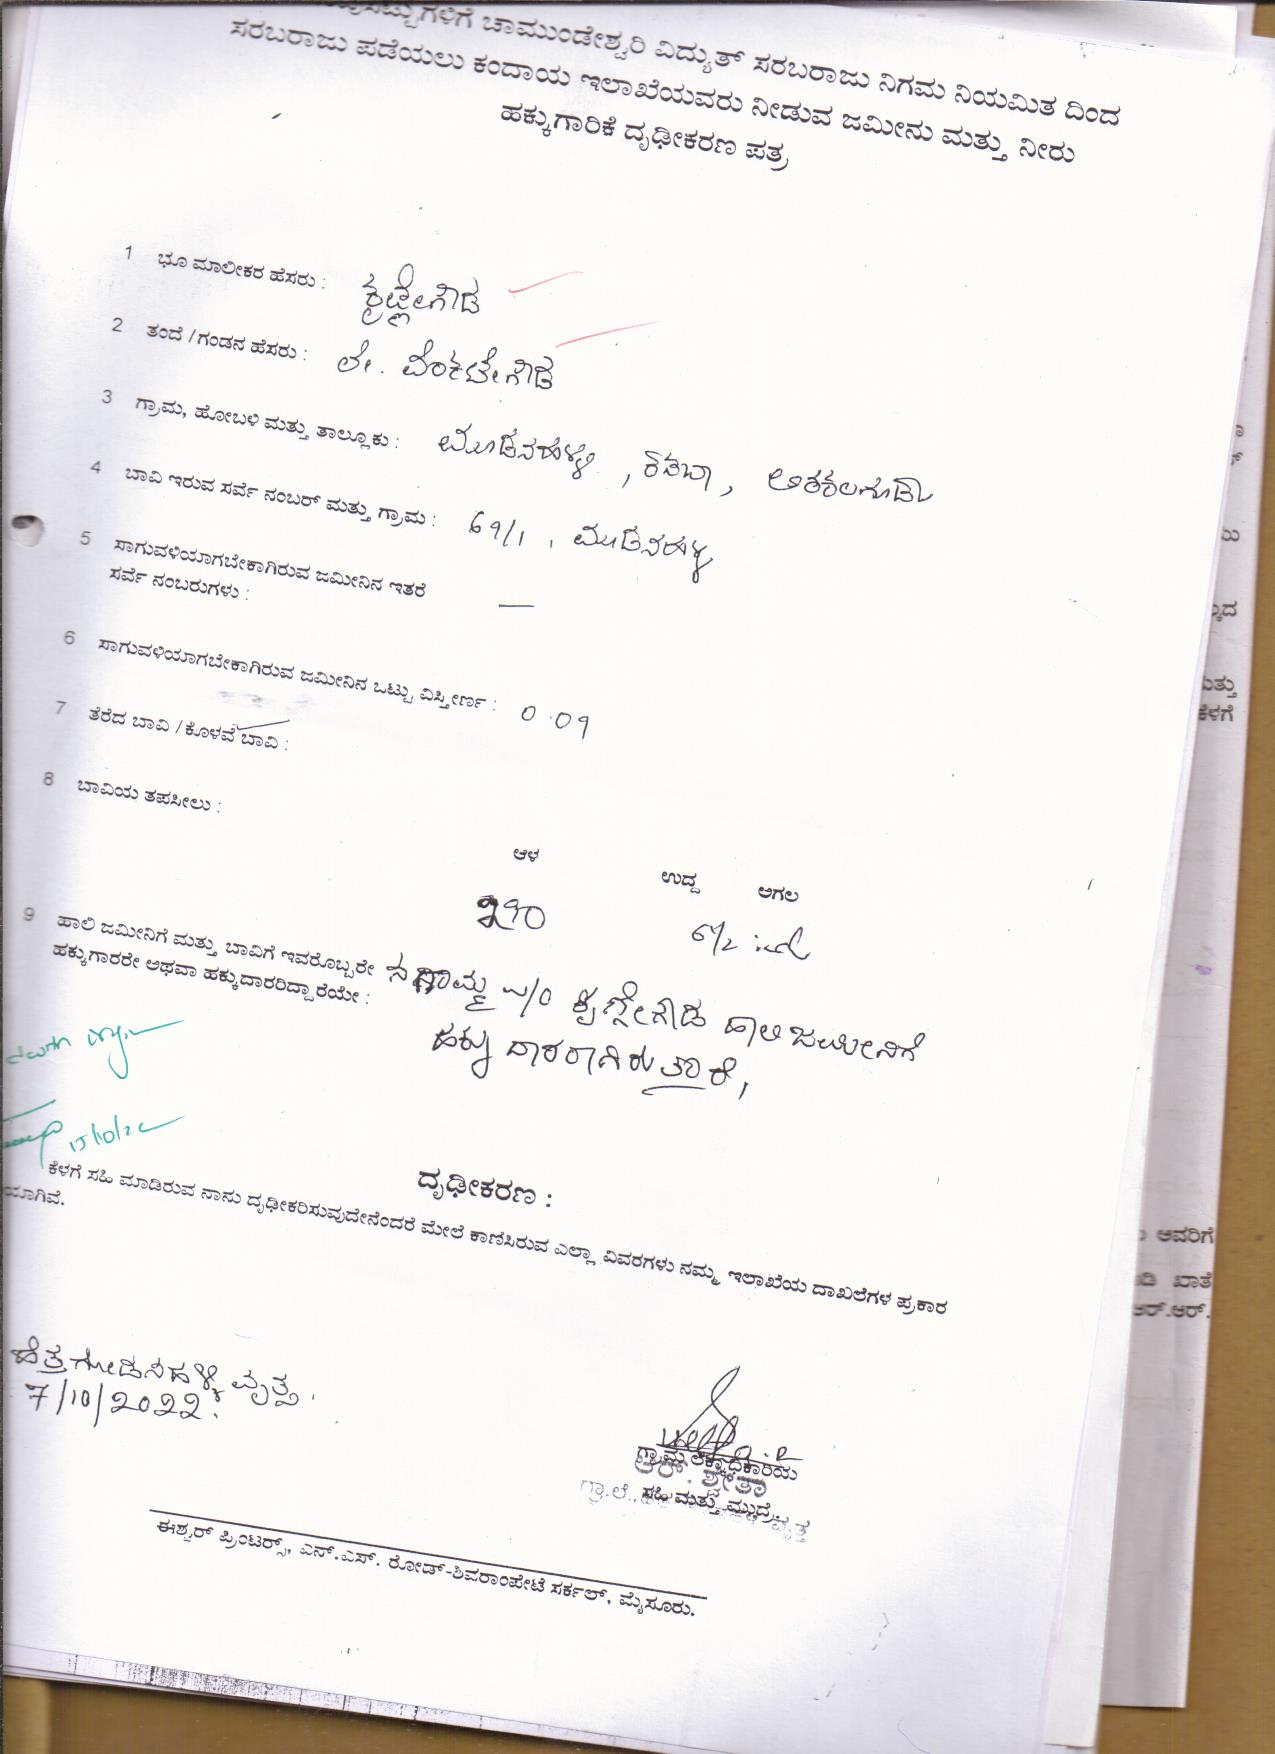 ಚಾಮುಂಡೇಶ್ವರಿ ವಿದ್ಯುತ್ ಸರಬರಾಜು ನಿಗಮ ನಿಯಮಿತ ದಿಂದ
ಸರಬರಾಜು ಪಡೆಯಲು ಕಂದಾಯ ಇಲಾಖೆಯವರು ನೀಡುವ ಜಮೀನು ಮತ್ತು ನೀರು
ಹಕ್ಕುಗಾರಿಕೆ ದೃಢೀಕರಣ ಪತ್ರ
1 ಭೂ ಮಾಲೀಕರ ಹೆಸರು :
2 ತಂದೆ /ಗಂಡನ ಹೆಸರು : ಲೇ. ವೆಂಕಟೇಗೌಡ
3 ಗ್ರಾಮ, ಹೋಬಳಿ ಮತ್ತು ತಾಲ್ಲೂಕು : ಮೂಡನಹಳ್ಳಿ , ಕಸಬಾ , ಅರಕಲಗೂಡು
4 ಬಾವಿ ಇರುವ ಸರ್ವೆ ನಂಬರ್ ಮತ್ತು ಗ್ರಾಮ : 69/1 , ಮೂಡನಹಳ್ಳಿ
5 ಸಾಗುವಳಿಯಾಗಬೇಕಾಗಿರುವ ಜಮೀನಿನ ಇತರೆ
ಸರ್ವೆ ನಂಬರುಗಳು : —
6 ಸಾಗುವಳಿಯಾಗಬೇಕಾಗಿರುವ ಜಮೀನಿನ ಒಟ್ಟು ವಿಸ್ತೀರ್ಣ : 0.09
7 ತೆರೆದ ಬಾವಿ /ಕೊಳವೆ ಬಾವಿ :
8 ಬಾವಿಯ ತಪಸೀಲು :
ಆಳ ಉದ್ದ ಅಗಲ
290 6½ ಇಂಚು
9 ಹಾಲಿ ಜಮೀನಿಗೆ ಮತ್ತು ಬಾವಿಗೆ ಇವರೊಬ್ಬರೇ
ಹಕ್ಕುಗಾರರೇ ಅಥವಾ ಹಕ್ಕುದಾರರಿದ್ದಾರೆಯೇ :
W/O ಕೃಷ್ಣೇಗೌಡ ಹಾಲಿ ಜಮೀನಿಗೆ
ಹಕ್ಕುದಾರರಾಗಿರುತ್ತಾರೆ,
15/10/22
ದೃಢೀಕರಣ :
ಕೆಳಗೆ ಸಹಿ ಮಾಡಿರುವ ನಾನು ದೃಢೀಕರಿಸುವುದೇನೆಂದರೆ ಮೇಲೆ ಕಾಣಿಸಿರುವ ಎಲ್ಲಾ ವಿವರಗಳು ನಮ್ಮ ಇಲಾಖೆಯ ದಾಖಲೆಗಳ ಪ್ರಕಾರ
ಯಾಗಿವೆ.
ವೃತ್ತ.
7/10/2022.
ಗ್ರಾಮ ಲೆಕ್ಕಾಧಿಕಾರಿಯ
ಸಹಿ ಮತ್ತು ಮುದ್ರೆ
ಈಶ್ವರ್ ಪ್ರಿಂಟರ್ಸ್, ಎನ್.ಎಸ್. ರೋಡ್-ಶಿವರಾಂಪೇಟೆ ಸರ್ಕಲ್, ಮೈಸೂರು.
ಅವರಿಗೆ
ಖಾತೆ
ಆರ್.ಆರ್.